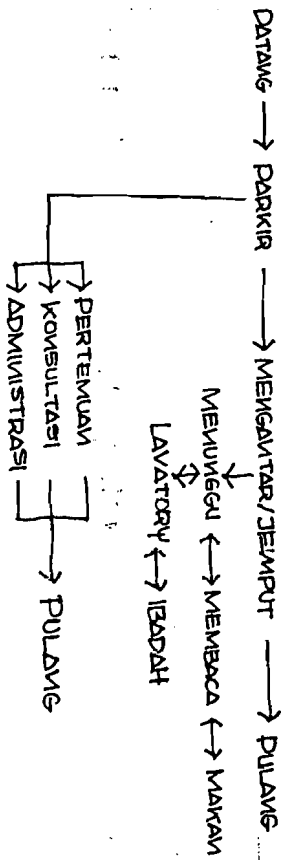 DATANG → PARKIR → MENGANTAR/JEMPUT → PULANG
MENUNGGU ↔ MEMBACA ↔ MAKAN
LAVATORY ↔ IBADAH
PERTEMUAN
KONSULTASI
ADMINISTRASI
→ PULANG